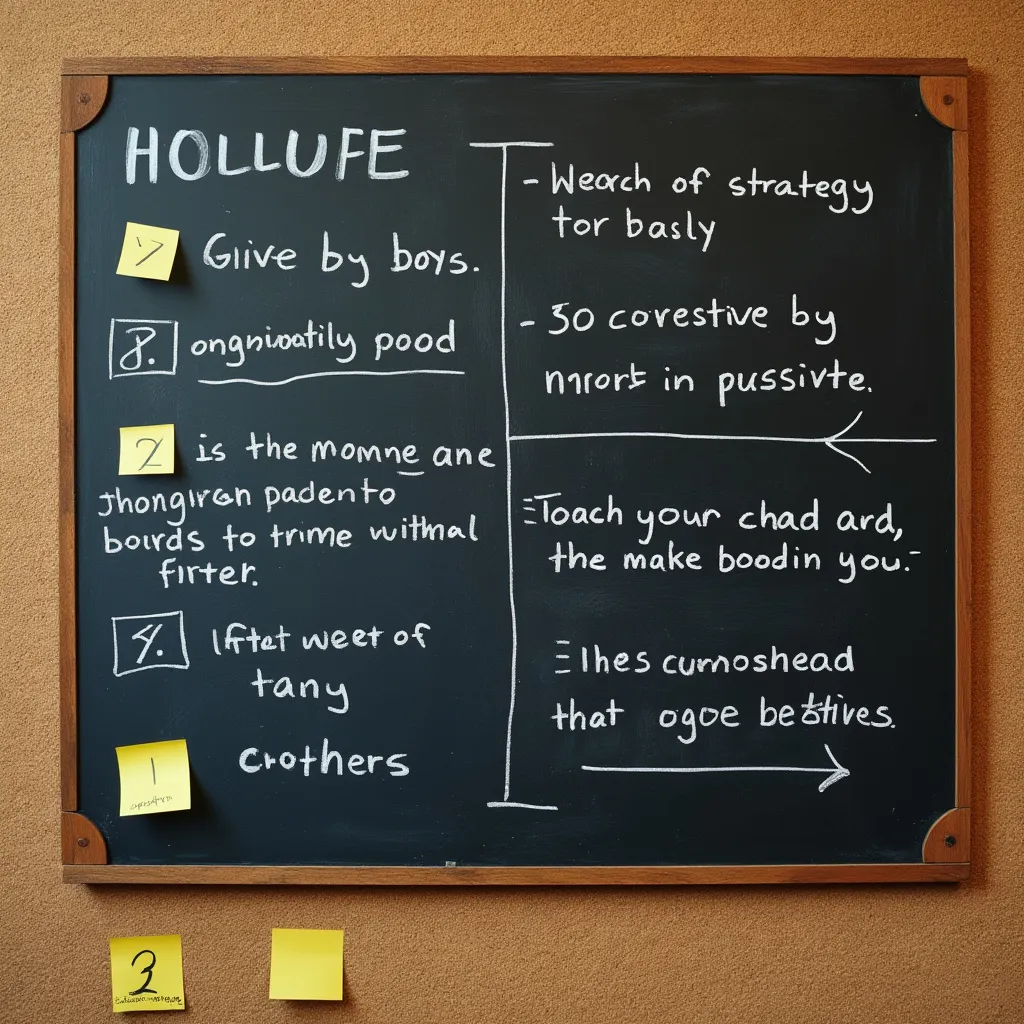 HOLLUFE
7 Giive by boys.
8. ongnivoatily pood
2 is the momne ane
Jhongiran padento
boirds to trime withnal
firter.
4. Iftet weet of
tany
1 Crothers
- Weorch of strategy
tor basly
- 30 corestive by
in pussivte.
Toach your chad ard,
the make boodin you.-
Ihes cumoshead
that ogoe
3